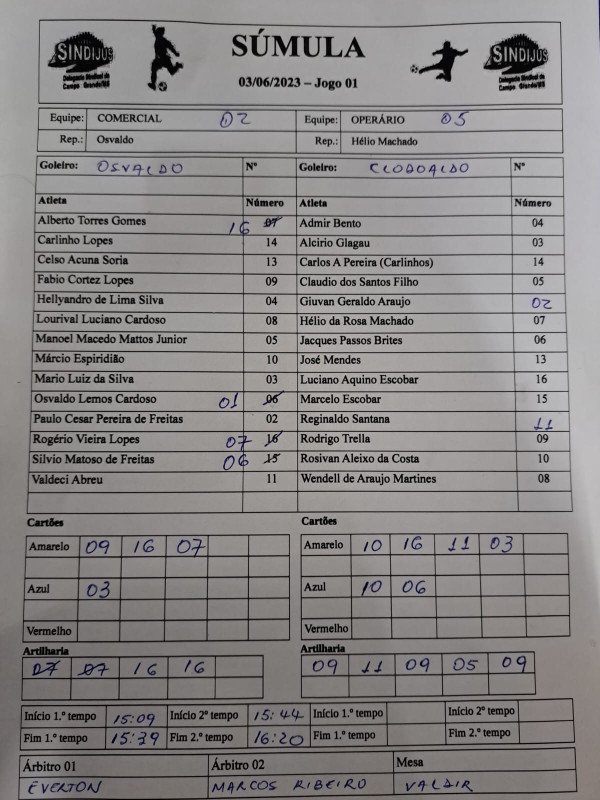 SINDIJUS
Delegacia Sindical de
Campo Grande/MS
SÚMULA
03/06/2023 – Jogo 01
SINDIJUS
Delegacia Sindical de
Campo Grande/MS
Equipe: COMERCIAL 02 Equipe: OPERÁRIO 05
Rep.: Osvaldo Rep.: Hélio Machado
Goleiro: OSVALDO Nº Goleiro: CLODOALDO Nº
Atleta Número Atleta Número
Alberto Torres Gomes 16 07 Admir Bento 04
Carlinho Lopes 14 Alcirio Glagau 03
Celso Acuna Soria 13 Carlos A Pereira (Carlinhos) 14
Fabio Cortez Lopes 09 Claudio dos Santos Filho 05
Hellyandro de Lima Silva 04 Giuvan Geraldo Araujo 02
Lourival Luciano Cardoso 08 Hélio da Rosa Machado 07
Manoel Macedo Mattos Junior 05 Jacques Passos Brites 06
Márcio Espiridião 10 José Mendes 13
Mario Luiz da Silva 03 Luciano Aquino Escobar 16
Osvaldo Lemos Cardoso 01 06 Marcelo Escobar 15
Paulo Cesar Pereira de Freitas 02 Reginaldo Santana 11
Rogério Vieira Lopes 07 16 Rodrigo Trella 09
Silvio Matoso de Freitas 06 15 Rosivan Aleixo da Costa 10
Valdeci Abreu 11 Wendell de Araujo Martines 08
Cartões Cartões
Amarelo 09 16 07 Amarelo 10 16 11 03
Azul 03 Azul 10 06
Vermelho Vermelho
Artilharia Artilharia
07 07 16 16 09 11 09 05 09
Início 1.º tempo 15:09 Início 2º tempo 15:44 Início 1.º tempo Início 2º tempo
Fim 1.º tempo 15:39 Fim 2.º tempo 16:20 Fim 1.º tempo Fim 2.º tempo
Árbitro 01 Árbitro 02 Mesa
EVERTON MARCOS RIBEIRO VALDIR